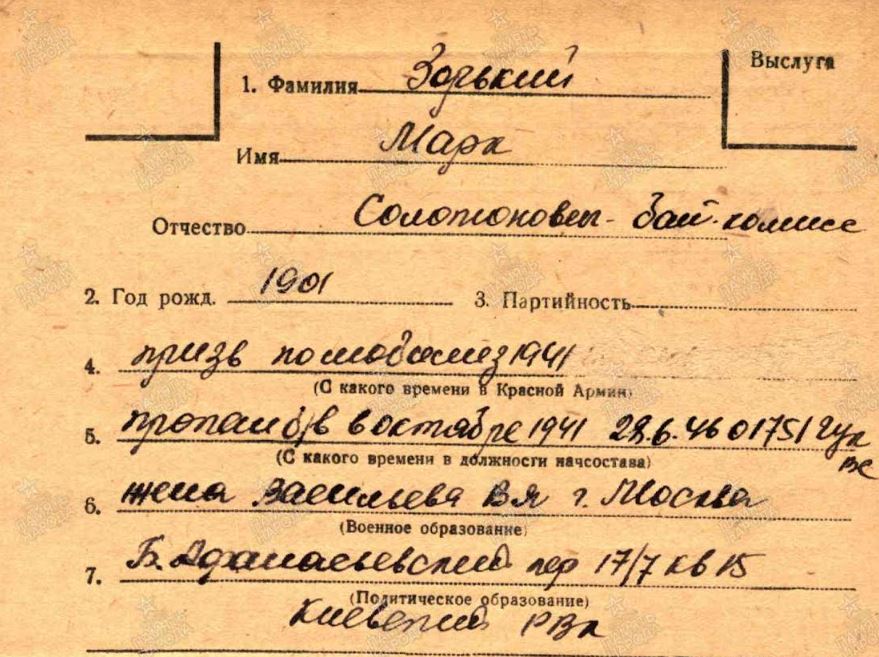 Выслуга
1. Фамилия Зорький
Имя Марк
Отчество Соломонович - бат. комисс
2. Год рожд. 1901 3. Партийность
4. призв по мобилиз 1941
(С какого времени в Красной Армии)
5. пропал б/в в октябре 1941 28.6.46 01751 гук
вс
(С какого времени в должности начсостава)
6. жена Васильева В Я г. Москва
(Военное образование)
7. Б. Афанасьевский пер 17/7 кв 15
(Политическое образование)
Киевский РВк